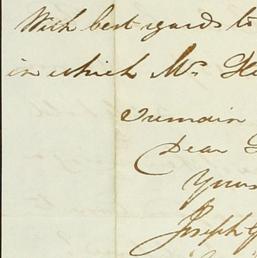 With best regards to
in which Mr. He
I remain
Dear
Yours
Joseph